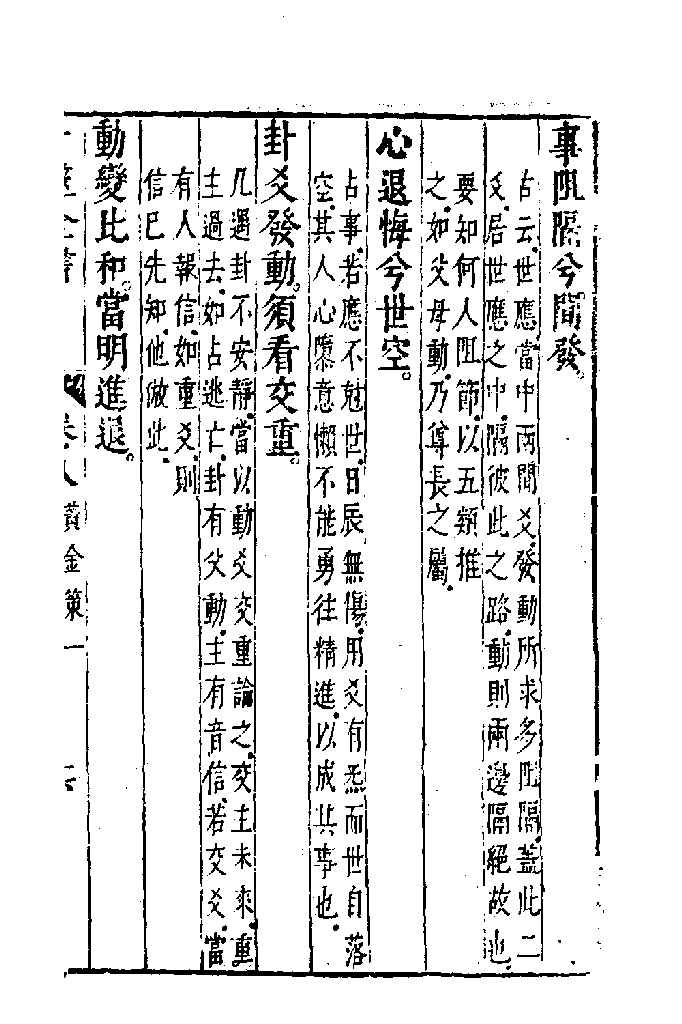 事阻隔兮間發。
古云、世應當中兩間爻、發動所求多阻隔、蓋此二
爻、居世應之中、隔彼此之路、動則兩邊隔絕故也、
要知何人阻節、以五類推
之、如父母動、乃尊長之屬、
心退悔兮世空。
占事、若應不尅世、日辰無傷、用爻有炁而世自落
空、其人心隳意懶不能勇往精進、以成其事也、
卦爻發動。須看交重。
凡遇卦不安靜、當以動爻交重論之、交主未來、重
主過去、如占逃亡、卦有父動、主有音信、若交爻、當
有人報信、如重爻、則
信已先知、他倣此、
動變比和。當明進退。
卷八 黃金策一